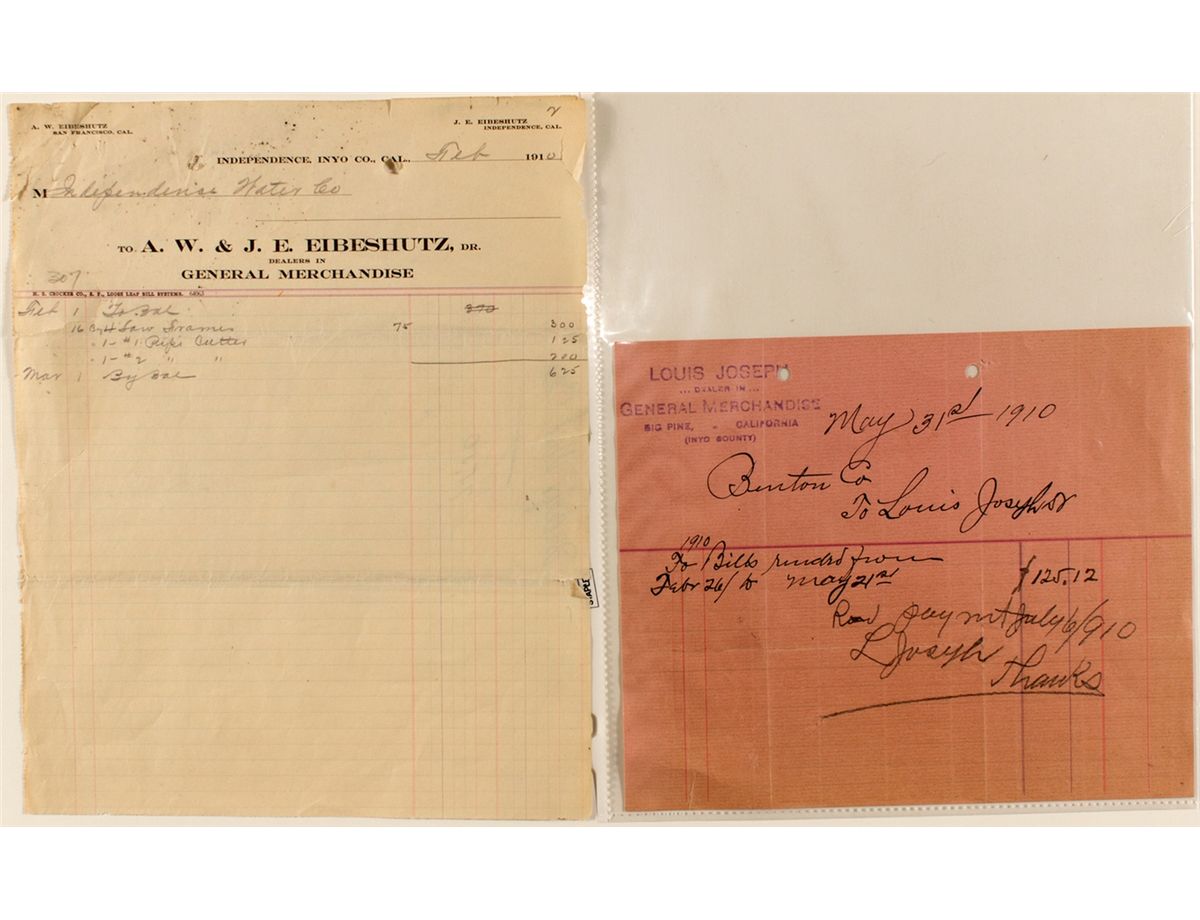 2
A. W. EIBESHUTZ
SAN FRANCISCO, CAL.
J. E. EIBESHUTZ
INDEPENDENCE, CAL.
INDEPENDENCE, INYO CO., CAL., Feb 1910
M Independence Water Co
TO A. W. & J. E. EIBESHUTZ, DR.
DEALERS IN
GENERAL MERCHANDISE
307
H. S. CROCKER CO., S. F., LOOSE LEAF BILL SYSTEMS.
Feb 1 To Bal
16 By 4 Saw Frames 75 300
" 1 - #1 Pipe Cutter 125
" 1 - #2 " " 200
Mar 1 By Bal 625
STAPLE
LOUIS JOSEPH
... DEALER IN ...
GENERAL MERCHANDISE
BIG PINE, - CALIFORNIA
(INYO COUNTY)
May 31st 1910
Benton Co
To Louis Joseph Dr
1910
To Bills rendrd from
Febr 26/ to May 21st $125.12
Recd paymt July 6/910
L Joseph
Thanks